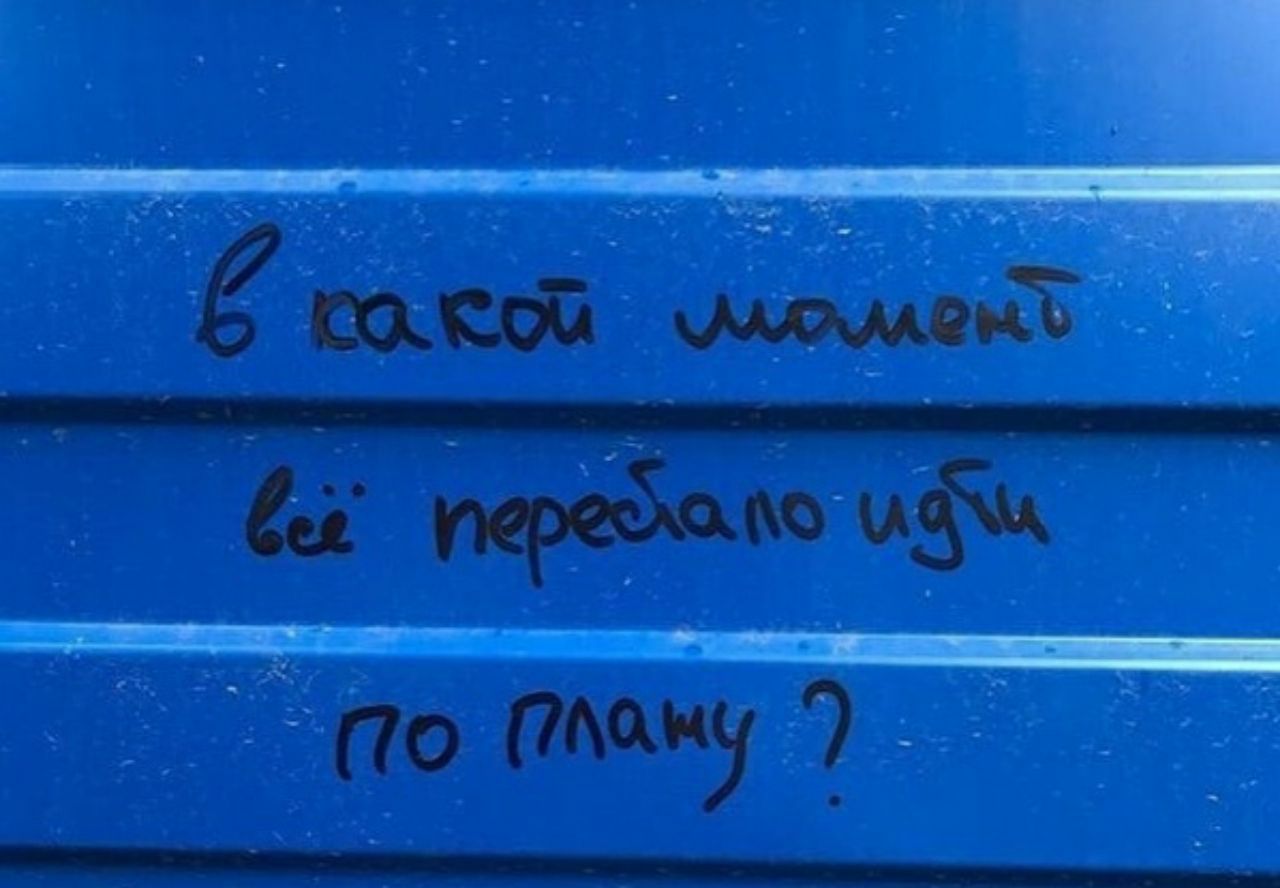 в какой момент
всё перестало идти
по плану?